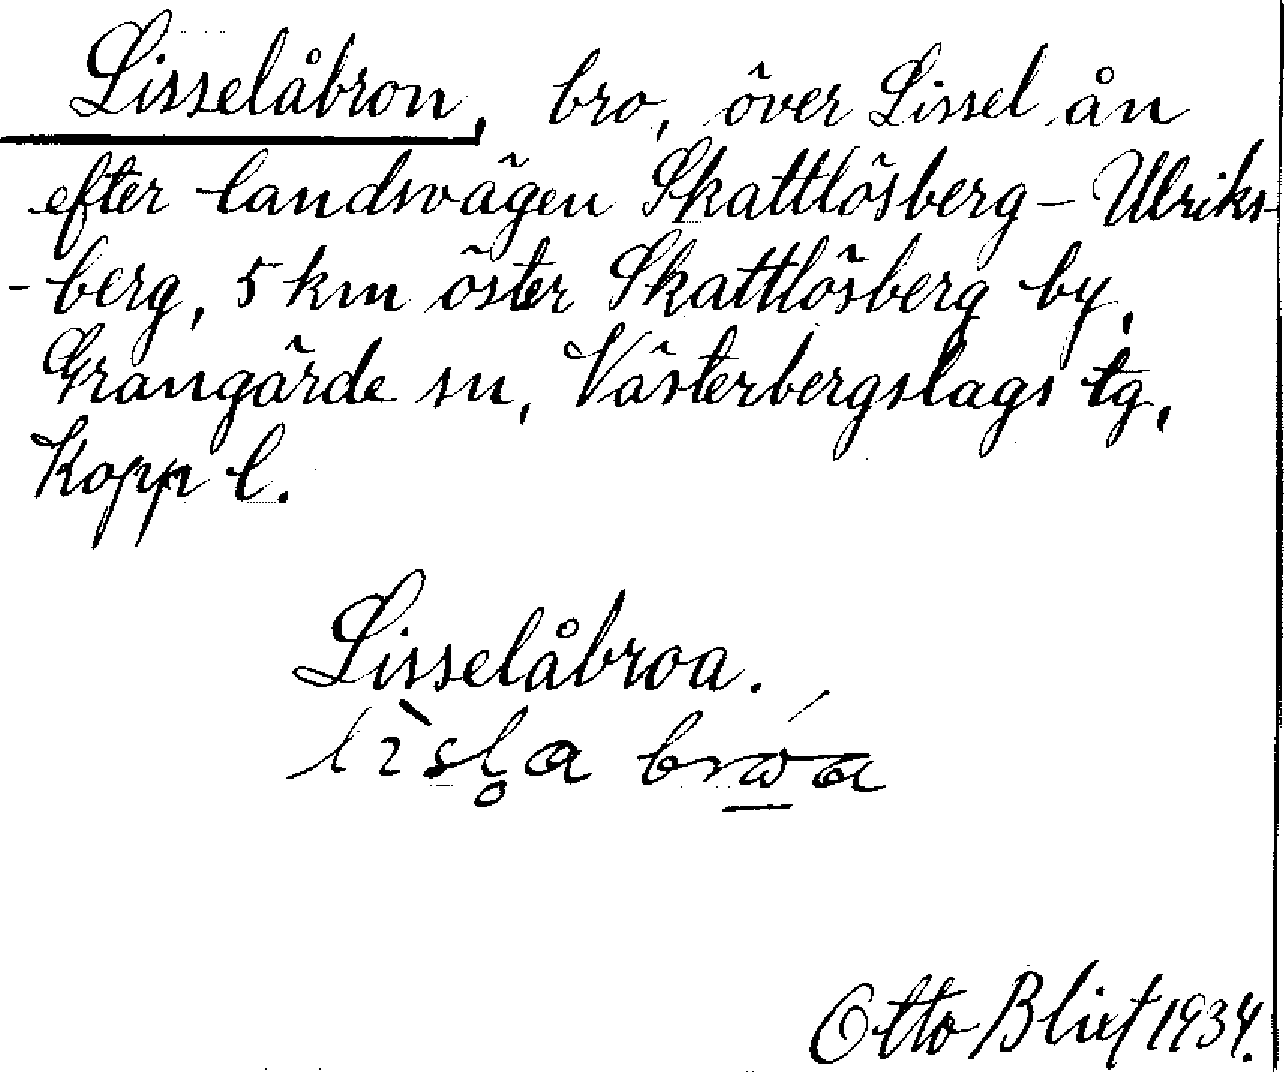 Lisselåbron, bro, över Lissel ån
efter landsvägen Skattlösberg - Ulriks-
- berg, 5 km öster Skattlösberg by,
Grangärde sn, Västerbergslags tg,
Kopp l.
Lisselåbroa.
Otto Blixt 1934.